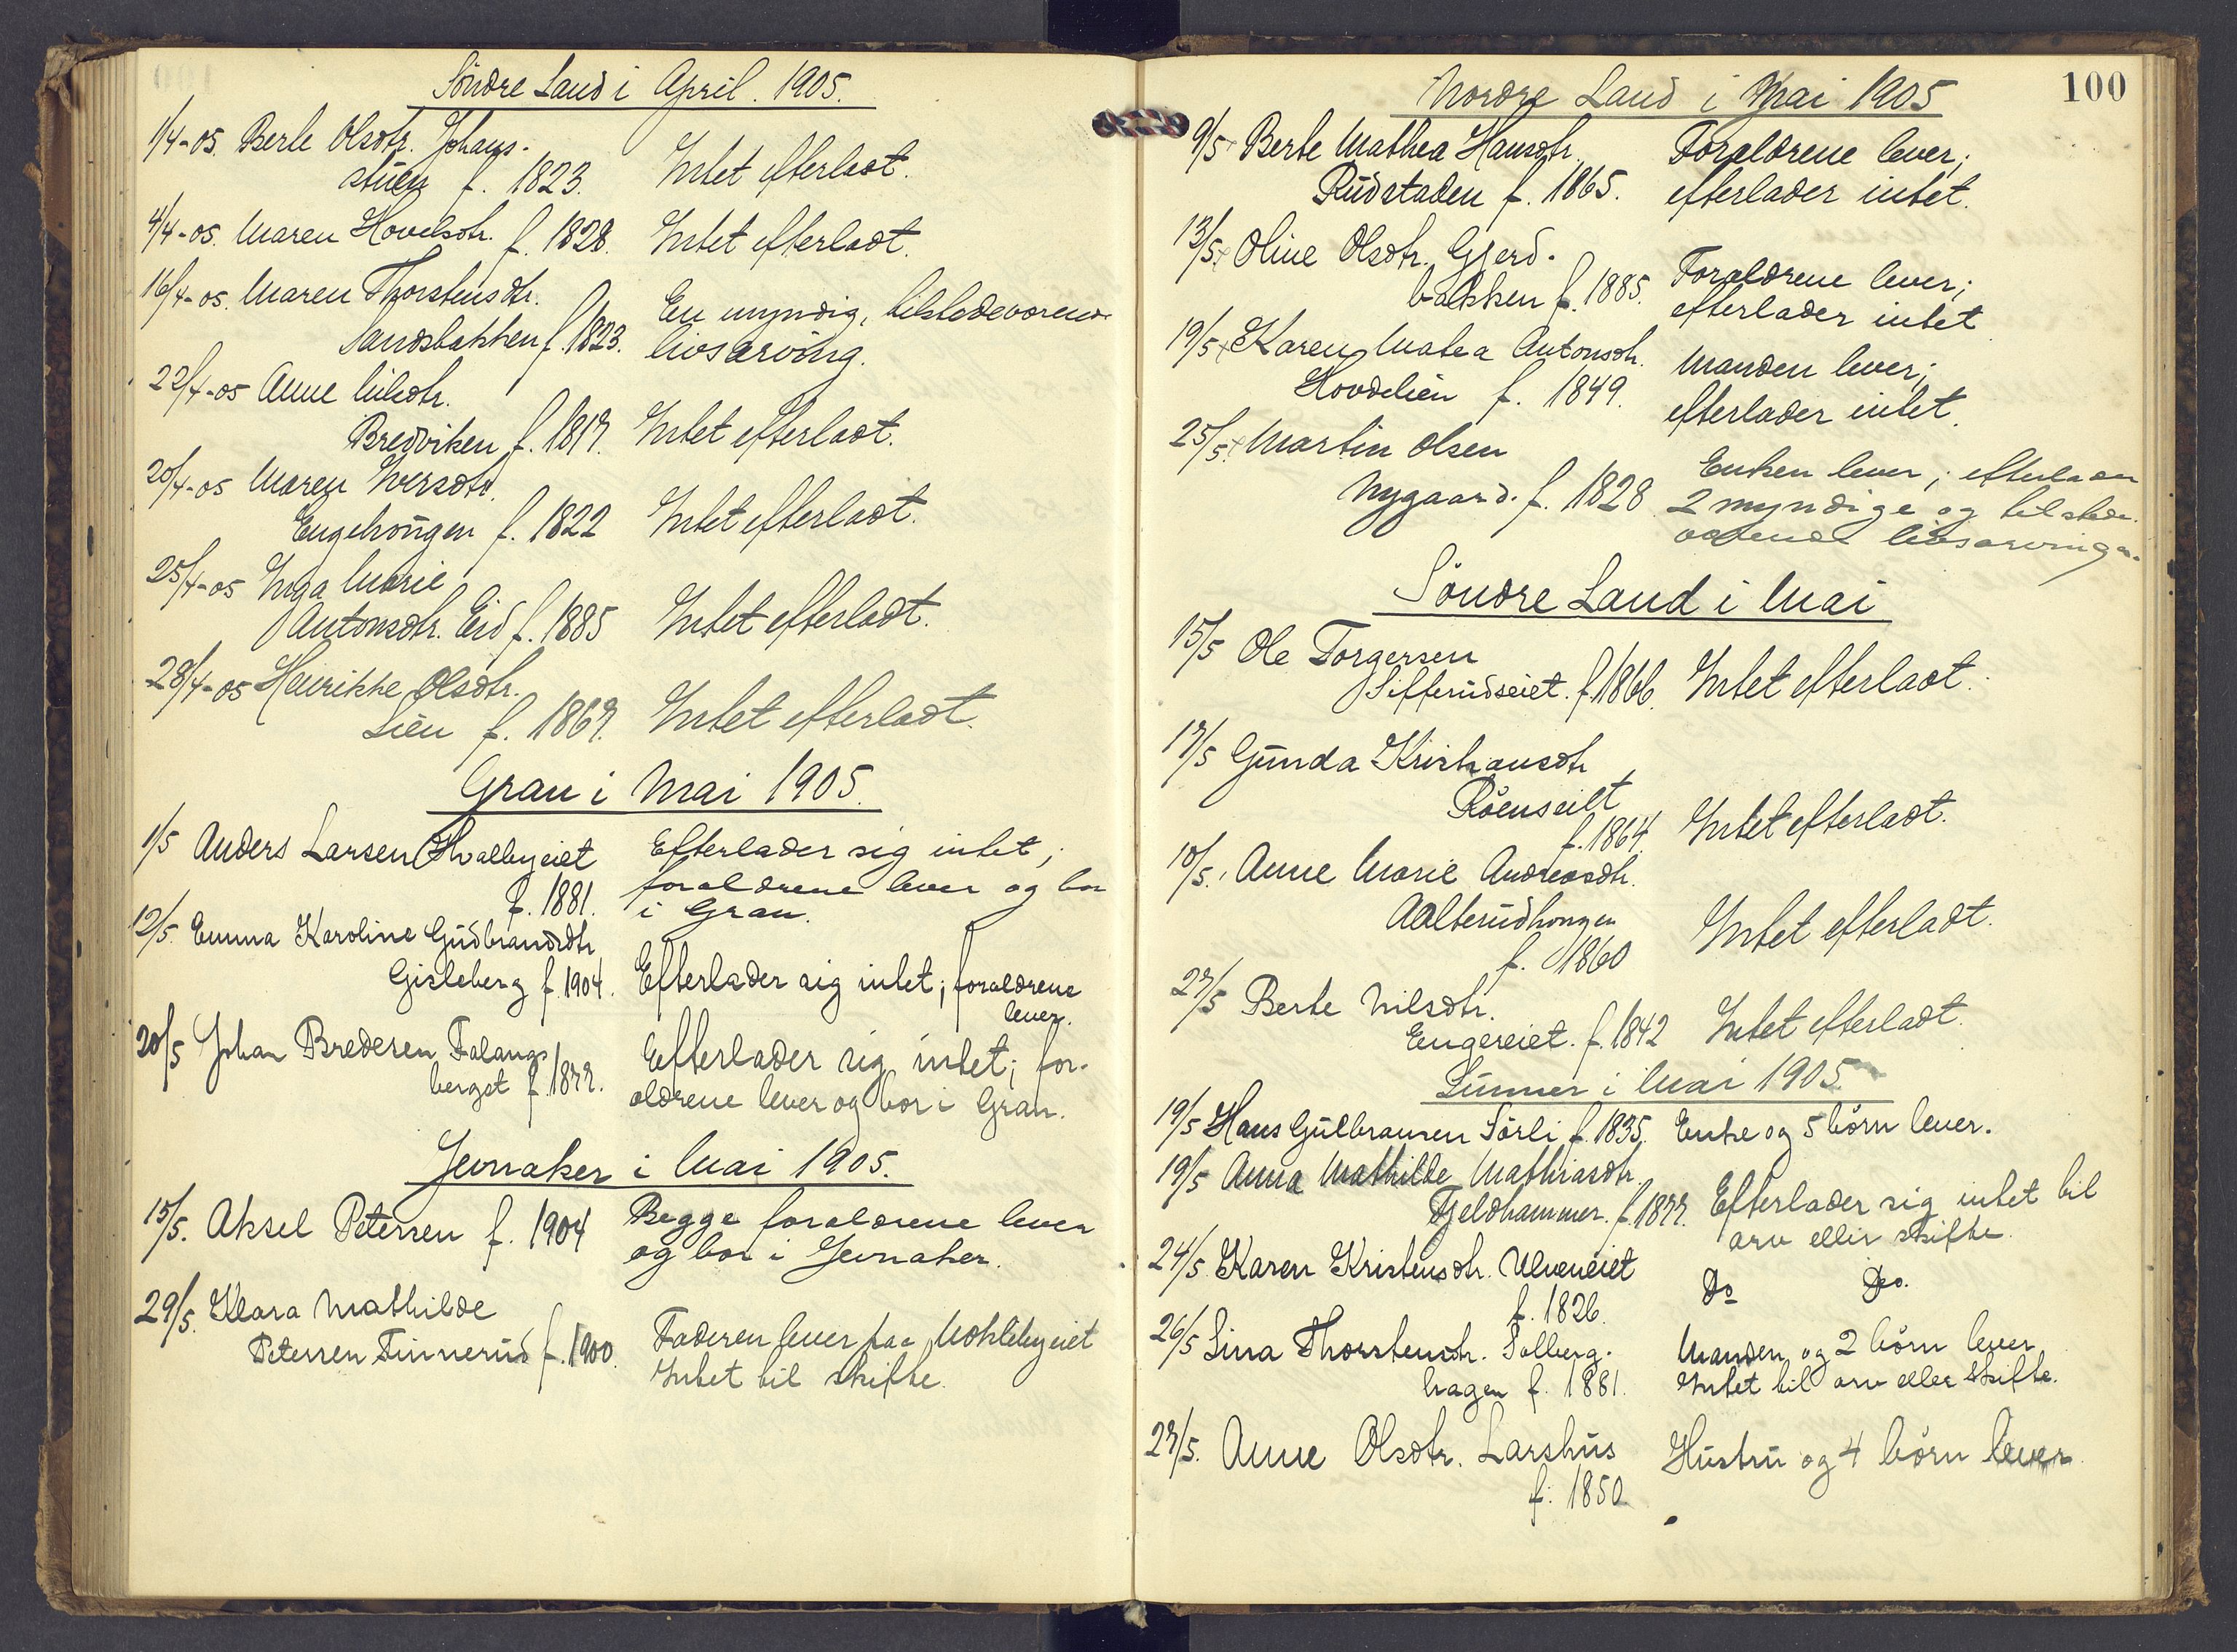 Søndre Land i April. 1905.
1/4-05. Berte Olsdtr. Johans-
stuen f. 1823. Intet efterladt.
4/4-05. Maren Hovelsdtr. f. 1828. Intet efterladt.
16/4-05. Maren Thorstensdtr.
Sandsbakken f. 1823. En myndig, tilstedeværende
livsarving.
22/4-05 Anne Nilsdtr.
Bredviken f. 1817. Intet efterladt.
20/4-05 Maren Iversdtr.
Engehaugen f. 1822 Intet efterladt.
25/4-05 Inga Marie
Antonsdtr. Eid f. 1885 Intet efterladt.
28/4-05 Henrikke Olsdtr.
Lien f. 1867. Intet efterladt.
Gran i Mai 1905.
1/5 Anders Larsen Hvalbyeiet
f. 1881. Efterlader sig intet;
forældrene lever og bor
i Gran.
12/5. Emma Karoline Gudbrandsdtr
Gisleberg f. 1904. Efterlader sig intet; forældrene
lever.
20/5 Johan Bredesen Falangs
berget f. 1877. Efterlader sig intet; for-
ældrene lever og bor i Gran.
Jevnaker i Mai 1905.
15/5. Aksel Petersen f. 1904 Begge forældrene lever
og bor i Jevnaker.
29/5. Klara Mathilde
Petersen Finnerud f. 1900. Faderen lever paa Moklebyeiet
Intet til skifte.
100
Nordre Land i Mai 1905
9/5 Berte Mathea Hansdtr.
Rudstaden f. 1865. Forældrene lever;
efterlader intet.
13/5 Oline Olsdtr. Gjerd-
bakken f. 1885. Forældrene lever;
efterlader intet
19/5 Karen Matea Antonsdtr.
Hovdelien f. 1849. Manden lever;
efterlader intet.
25/5. Martin Olsen
Nygaard. f. 1828 Enken lever; efterlader
2 myndige og tilstede-
værende livsarvinger.
Søndre Land i Mai
15/5 Ole Torgersen
Sifferudseiet. f. 1866. Intet efterladt.
17/5 Gunda Kristiansdtr
Røenseiet
f. 1864. Intet efterladt.
18/5. Anne Marie Andreasdtr.
Aalterudhougen
f. 1860 Intet efterladt.
27/5 Berte Nilsdtr.
Engereiet. f. 1842 Intet efterladt.
Lunner i Mai 1905
19/5 Hans Gulbransen Sørli f. 1835. Enke og 5 børn lever.
19/5 Anna Mathilde Mathiasdtr.
Fjeldhammer. f. 1877. Efterlader sig intet til
arv eller skifte.
24/5 Karen Kristensdtr. Ulveneiet
f. 1826. Do Do.
26/5 Lina Thorstensdtr. Solberg-
hagen f. 1881. Manden og 2 børn lever
Intet til arv eller skifte.
27/5. Anne Olsdtr. Larshus
f. 1850 Hustru og 4 børn lever